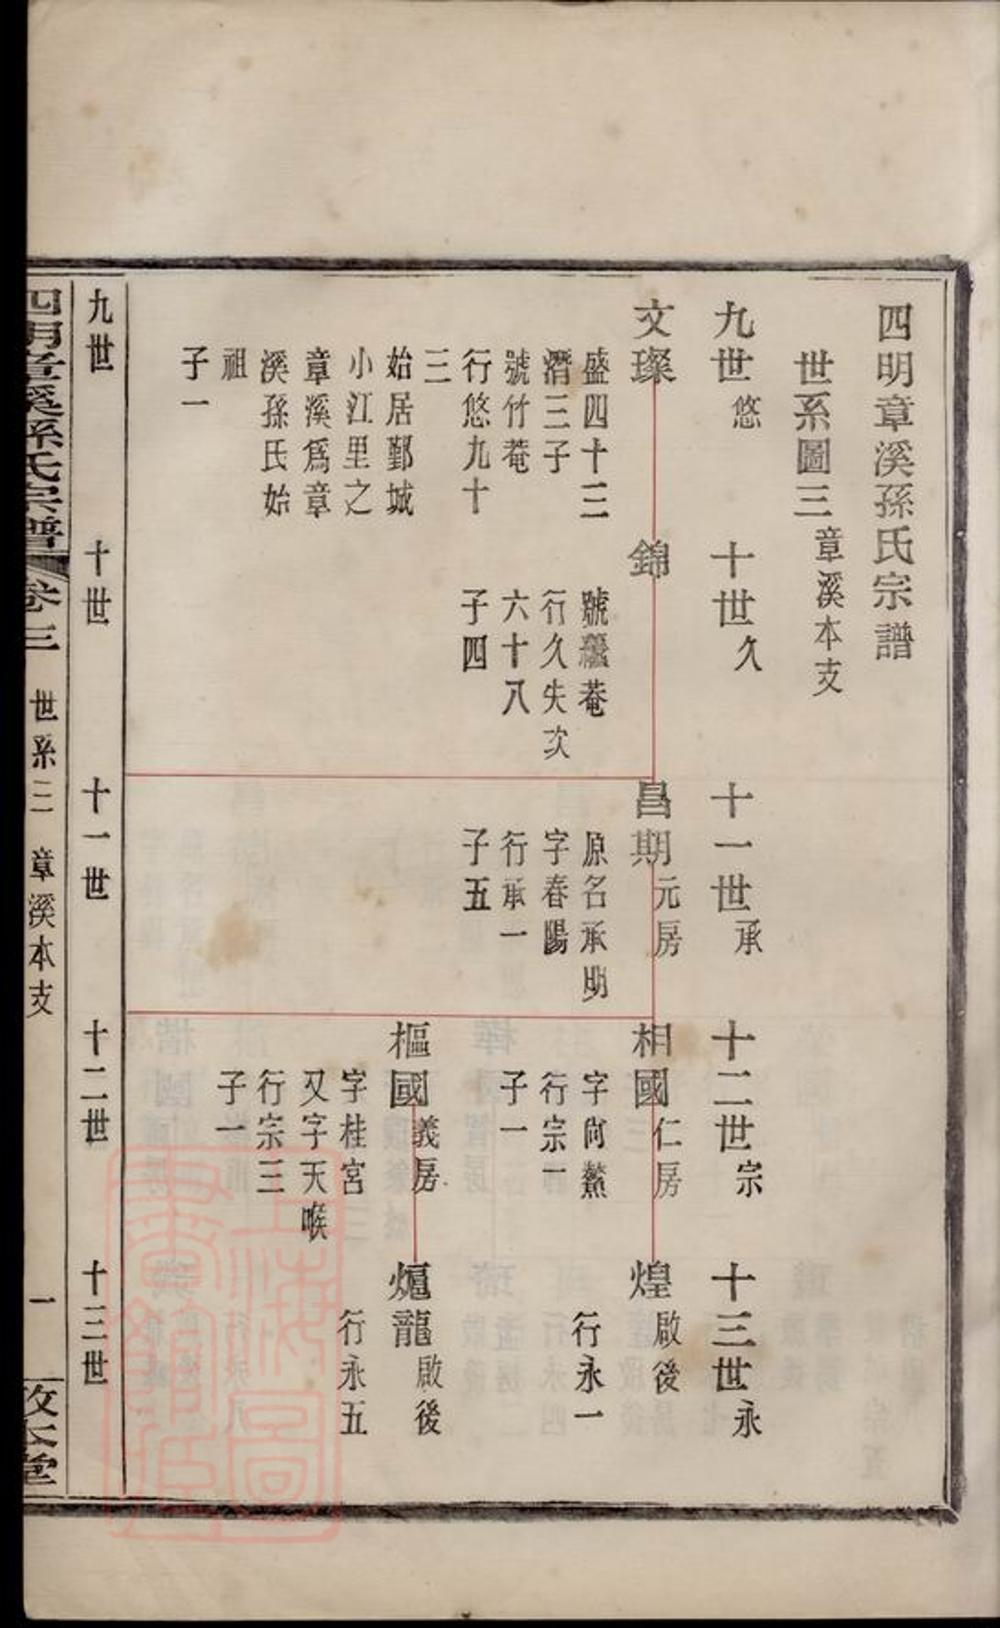 四明章溪孫氏宗譜
世系圖三章溪本支
九世悠
十世久
十一世承
十二世宗
十三世永
文璨
盛四十三
潛三子
號竹菴
行悠九十
三
始居鄞城
小江里之
章溪爲章
溪孫氏始
祖
子一
錦
號繼菴
行久失次
六十八
子四
昌期元房
原名承明
字春陽
行承一
子五
相國仁房
字尚鰲
行宗一
子一
樞國義房
字桂宮
又字天喉
行宗三
子一
煌啟後
行永一
熰龍啟後
行永五
九世
十世
十一世
十二世
十三世
四明章溪孫氏宗譜
卷三
世系三
章溪本支
一